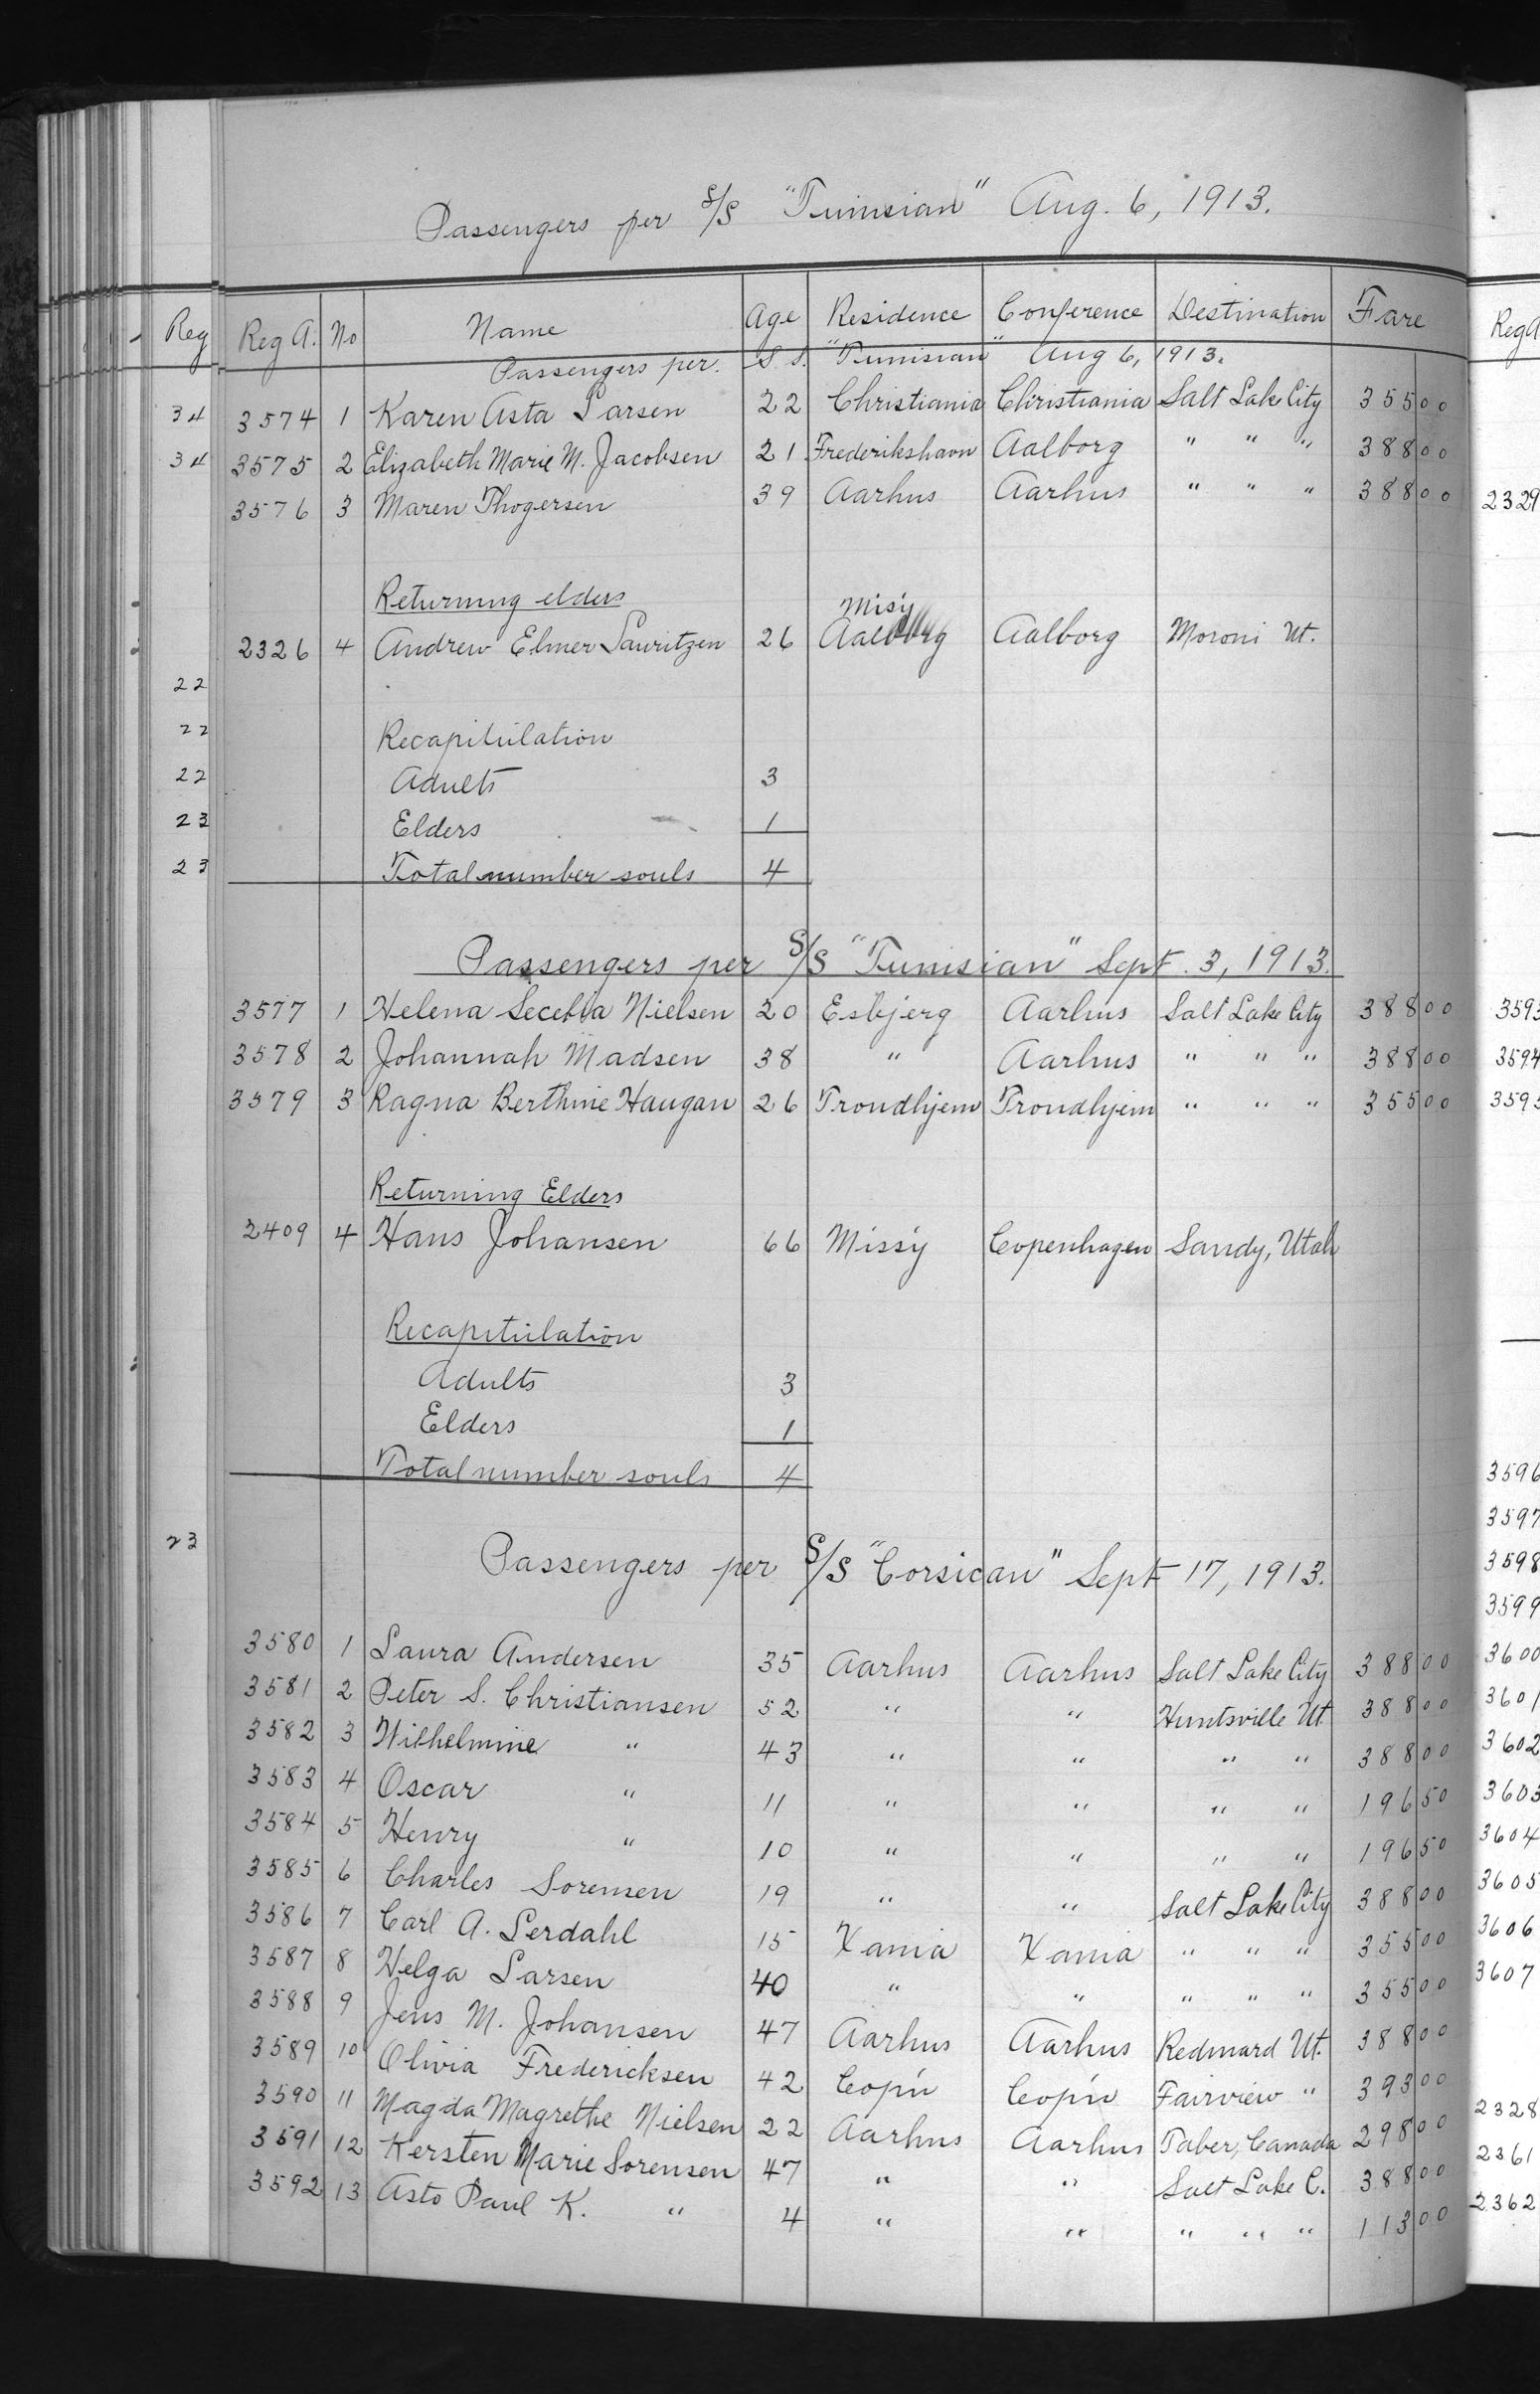 Passengers per S/S "Tunisian" Aug. 6, 1913.
Reg A. No Name Age Residence Conference Destination Fare
Passengers per. S.S. "Tunisian" Aug 6, 1913.
3574 1 Karen Asta Larsen 22 Christiania Christiania Salt Lake City 355 00
3575 2 Elizabeth Marie M. Jacobsen 21 Frederikshavn Aalborg " " " 388 00
3576 3 Maren Thogersen 39 Aarhus Aarhus " " " 388 00
Returning elders
Misy
2326 4 Andrew Elmer Lauritzen 26 Aalborg Aalborg Moroni Ut.
Recapitulation
Adults 3
Elders 1
Total number souls 4
Passengers per S/S "Tunisian" Sept. 3, 1913.
3577 1 Helena Secelia Nielsen 20 Esbjerg Aarhus Salt Lake City 388 00
3578 2 Johannah Madsen 38 " Aarhus " " " 388 00
3579 3 Ragna Berthine Haugan 26 Trondhjem Trondhjem " " " 355 00
Returning Elders
2409 4 Hans Johansen 66 Missy Copenhagen Sandy, Utah
Recapitulation
Adults 3
Elders 1
Total number souls 4
Passengers per S/S "Corsican" Sept 17, 1913.
3580 1 Laura Andersen 35 Aarhus Aarhus Salt Lake City 388 00
3581 2 Peter S. Christiansen 52 " " Huntsville Ut 388 00
3582 3 Wilhelmine " 43 " " " " 388 00
3583 4 Oscar " 11 " " " " 196 50
3584 5 Henry " 10 " " " " 196 50
3585 6 Charles Sorensen 19 " " Salt Lake City 388 00
3586 7 Carl A. Lerdahl 15 Xania Xania " " " 355 00
3587 8 Helga Larsen 40 " " " " " 355 00
3588 9 Jens M. Johansen 47 Aarhus Aarhus Redmard Ut. 388 00
3589 10 Olivia Fredericksen 42 Cop'n Cop'n Fairview " 393 00
3590 11 Magda Magrethe Nielsen 22 Aarhus Aarhus Taber, Canada 298 00
3591 12 Kersten Marie Sorensen 47 " " Salt Lake C. 388 00
3592 13 Asto Paul K. " 4 " " " " " 113 00
Reg
34
34
22
22
22
23
23
23
Reg A
2329
3594
3596
3597
3598
3599
3600
3601
3602
3603
3604
3605
3606
3607
2328
2361
2362